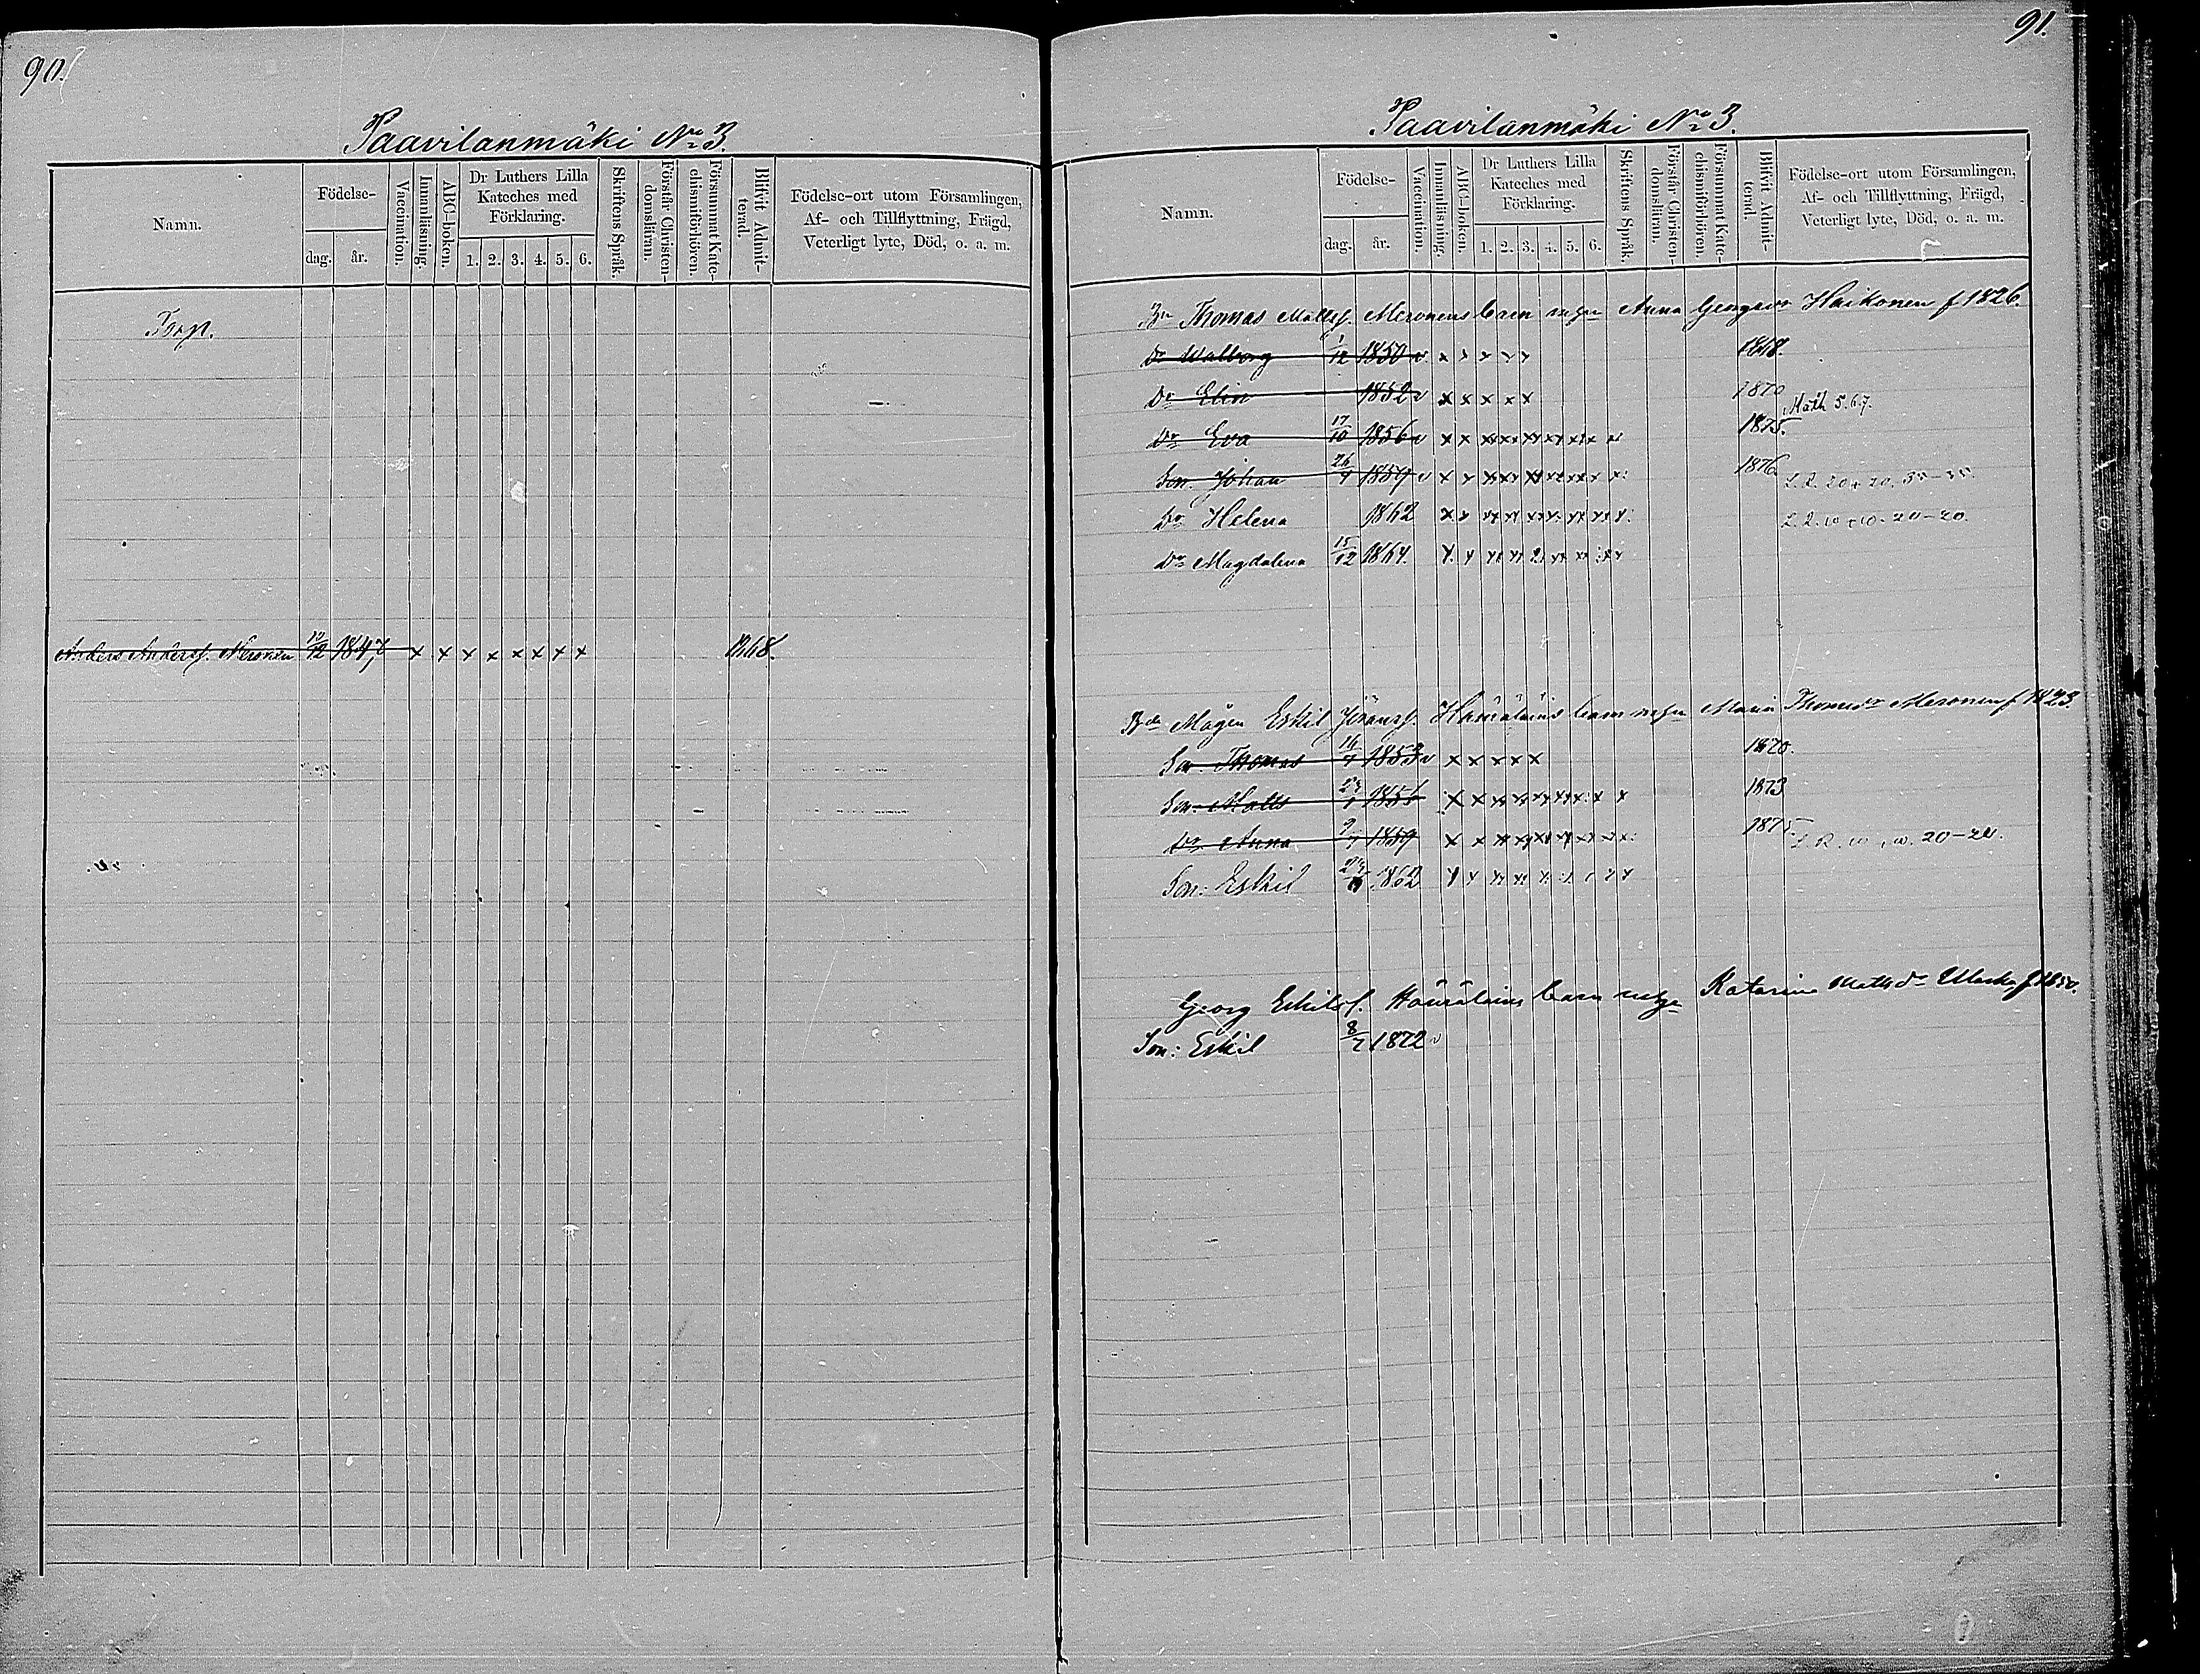 90.
Paavilanmäki No 3.
Namn.
Födelse-
dag.
år.
Vaccination.
Innanläsning.
ABC-boken.
Dr Luthers Lilla
Kateches med
Förklaring.
1. 2. 3. 4. 5. 6.
Skriftens Språk.
Förstår Christen-
domsläran.
Försummat Kate-
chismiförhören.
Blifvit Admit-
terad.
Födelse-ort utom Församlingen,
Af- och Tillflyttning, Frägd,
Veterligt lyte, Död, o. a. m.
Torp.
Anders Anderss. Meronen 12 1847 x x x x x x x x 1868.
91.
Paavilanmäki No 3.
Namn.
Födelse-
dag.
år.
Vaccination.
Innanläsning.
ABC-boken.
Dr Luthers Lilla
Kateches med
Förklaring.
1. 2. 3. 4. 5. 6.
Skriftens Språk.
Förstår Christen-
domsläran.
Försummat Kate-
chismiförhören.
Blifvit Admit-
terad.
Födelse-ort utom Församlingen,
Af- och Tillflyttning, Frägd,
Veterligt lyte, Död, o. a. m.
Bn Thomas Matss. Meronens barn m hu Anna Georgsdr Haikonen f 1826.
Dr Walborg 1/12 1850 v x x x x x 1868.
Dr Elin 1852 v x x x x x 1870
Math 5.6.7.
Dr Eva 17/10 1856 v x x xx xx xx xx xx xx 1875.
Son: Johan 26/4 1859 v x x xx xx xx xx xx x x: 1876
Dr Helena 1862 x x xx xx xx xx xx xx x:
Dr Magdalena 15/12 1864. x x xx xx xx xx xx
Bde Mågen Eskil Göranss. Hämäläins barn m hu Maria Thomasdr Meronen f 1823.
Son: Thomas 16/4 1853 v x x x x x 1870.
Son: Matts 1856 x x xx xx xx xx xx x x 1873
Dr Anna 9/7 1859 x x xx xx xx xx xx xx x: 1875. 20-20.
Son: Eskil 1862 x x xx xx
Georg Eskilss. Hämäläins barn m hu Katarina Mattsdr f 1850.
Son: Eskil 8/7 1872 v